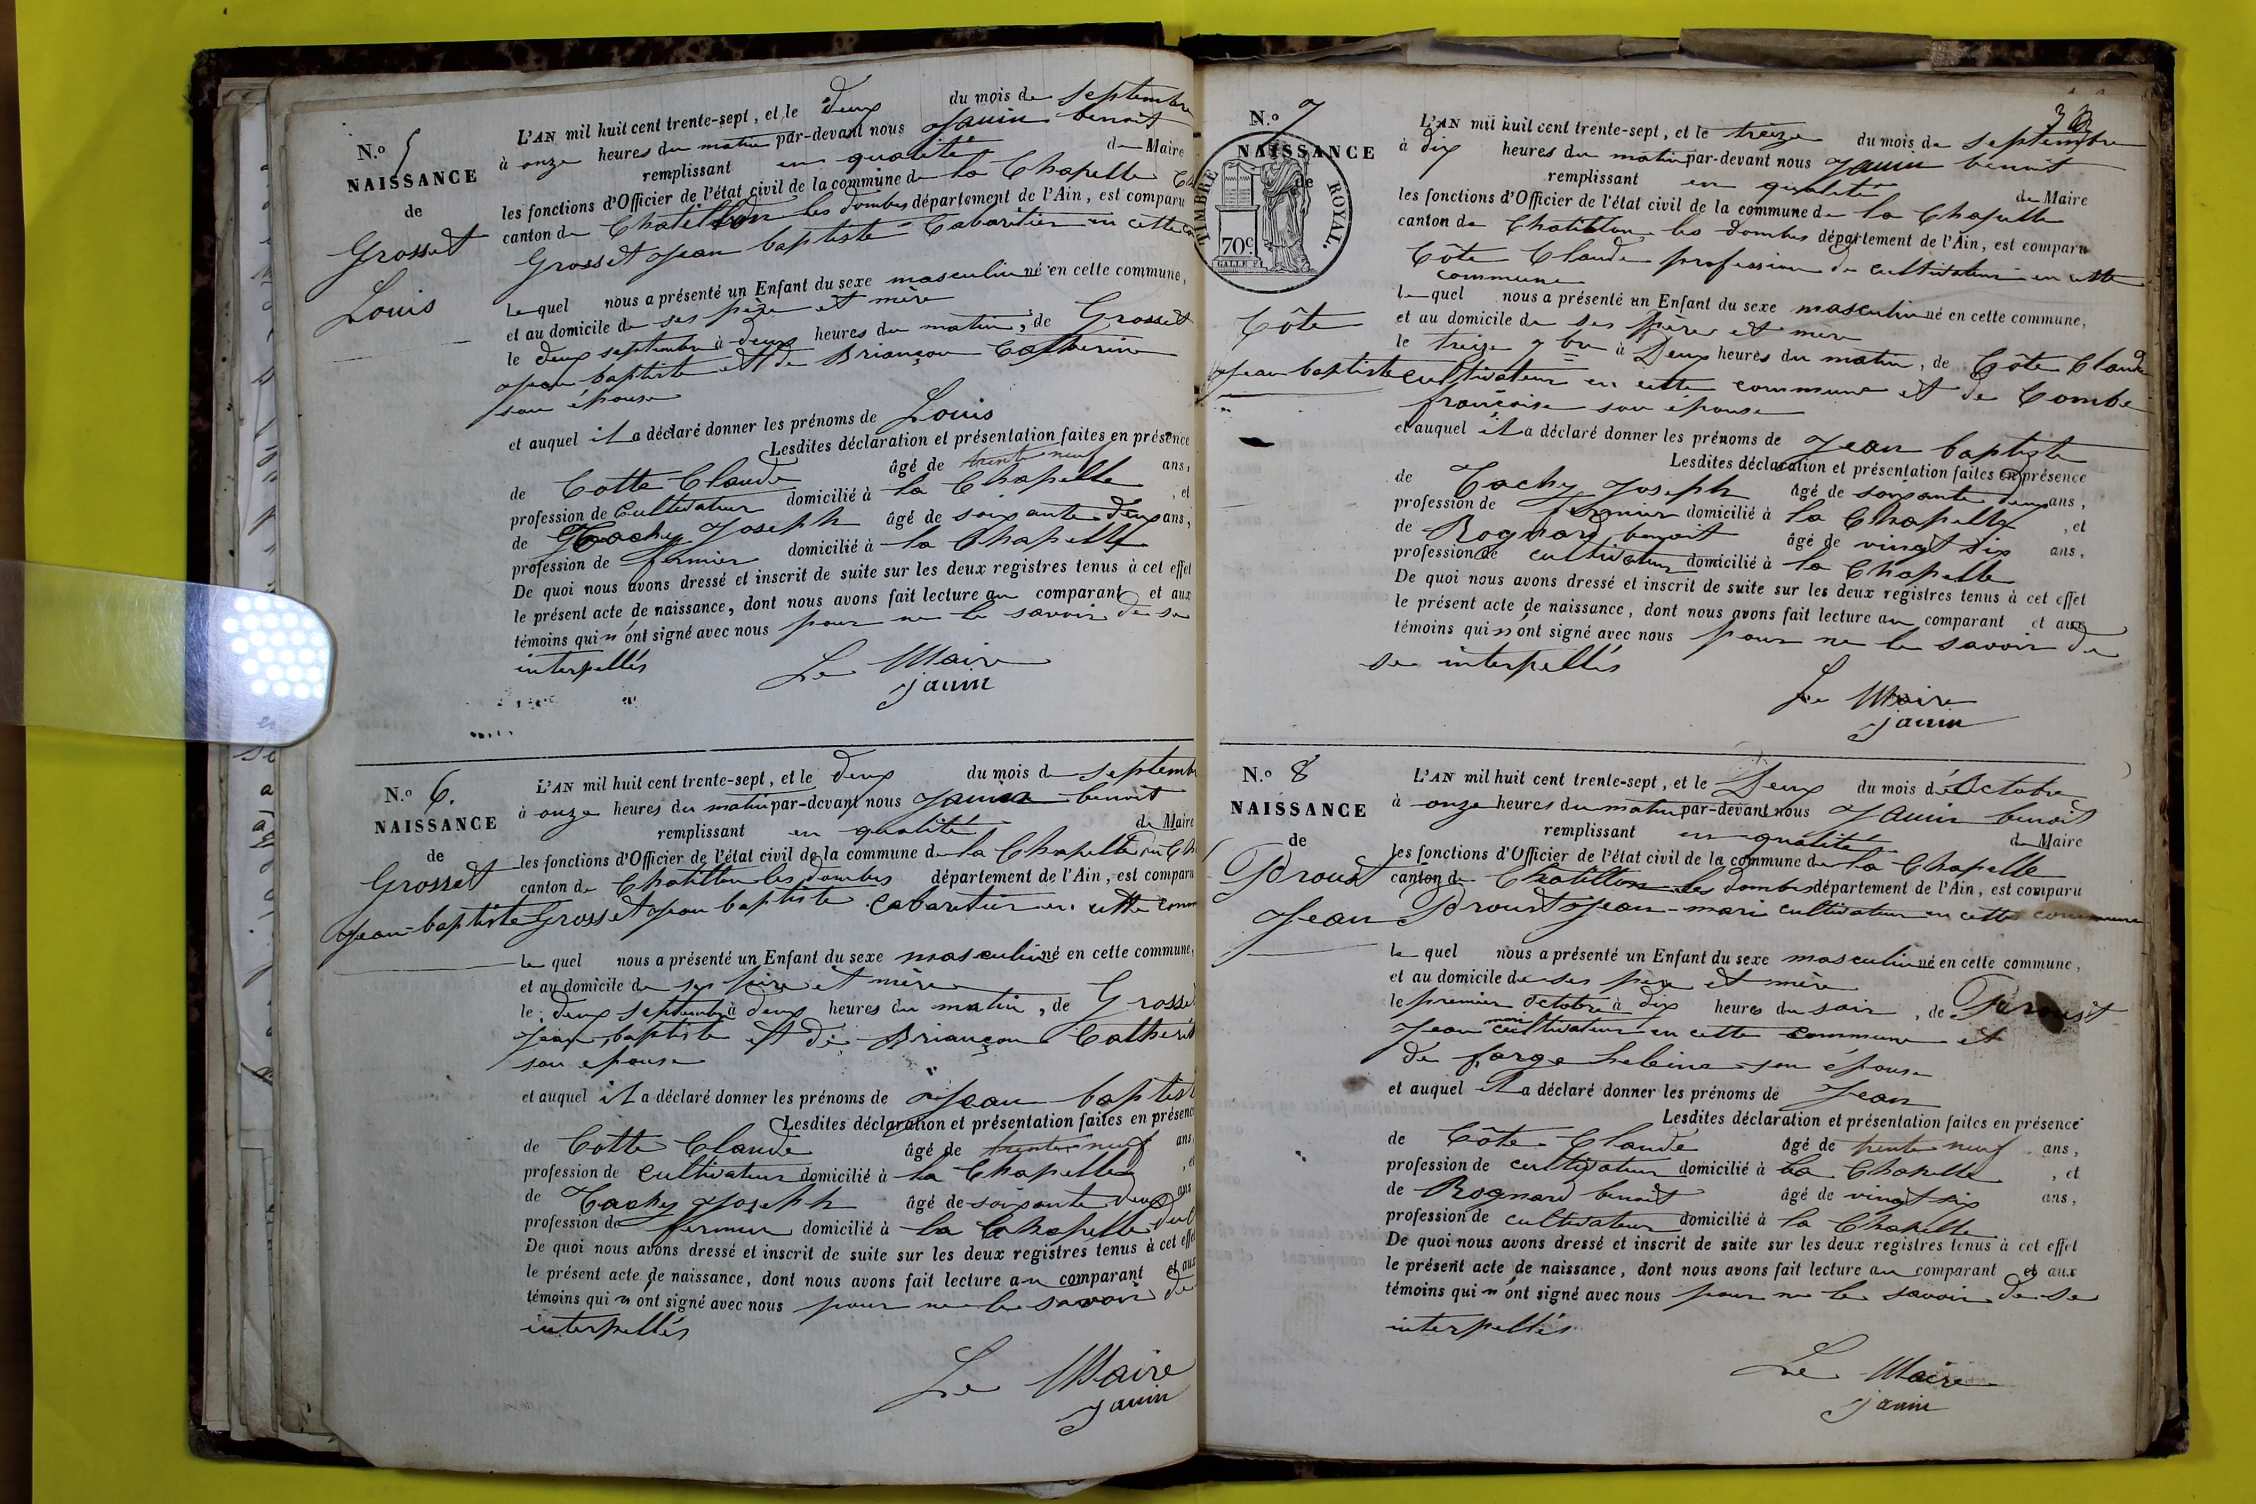 N.o 5
NAISSANCE
de
Grosset
Louis
L'AN mil huit cent trente-sept, et le deux du mois de septembre
à onze heures du matin par-devant nous Janin benoit
remplissant en qualité de Maire
les fonctions d'Officier de l'état civil de la commune de la Chapelle
canton de Chatillon les dombes département de l'Ain, est comparu
Grosset Jean baptiste Cabaretier en cette
lequel nous a présenté un Enfant du sexe masculin né en cette commune,
et au domicile de ses père et mère
le deux septembre à deux heures du matin, de Grosset
Jean baptiste et de Briançon Catherine
son épouse
et auquel il a déclaré donner les prénoms de Louis
Lesdites déclaration et présentation faites en présence
de Cotte Claude âgé de trente neuf ans,
profession de Cultivateur domicilié à la Chapelle, et
de Tachy Joseph âgé de soixante deux ans,
profession de fermier domicilié à la Chapelle
De quoi nous avons dressé et inscrit de suite sur les deux registres tenus à cet effet
le présent acte de naissance, dont nous avons fait lecture au comparant et aux
témoins qui n'ont signé avec nous pour ne le savoir de ce
interpellés
Le Maire
janin
N.o 6.
NAISSANCE
de
Grosset
Jean-baptiste
L'AN mil huit cent trente-sept, et le deux du mois de septemb
à onze heures du matin par-devant nous Janin benoit
remplissant en qualité de Maire
les fonctions d'Officier de l'état civil de la commune de la Chapelle
canton de Chatillon les dombes département de l'Ain, est comparu
Grosset Jean baptiste cabaretier en cette comm
lequel nous a présenté un Enfant du sexe masculin né en cette commune,
et au domicile de ses père et mère
le deux septembre à deux heures du matin, de Grosset
Jean baptiste et de Briançon Catherin
son epouse
et auquel il a déclaré donner les prénoms de Jean baptist
Lesdites déclaration et présentation faites en présence
de Cotte Claude âgé de trente neuf ans,
profession de cultivateur domicilié à la Chapelle, et
de Tachy Joseph âgé de soixante deux ans
profession de fermier domicilié à la Chapelle
De quoi nous avons dressé et inscrit de suite sur les deux registres tenus à cet effet
le présent acte de naissance, dont nous avons fait lecture au comparant et aux
témoins qui n'ont signé avec nous pour ne le savoir de
interpellés
Le Maire
janin
N.o 7
NAISSANCE
de
TIMBRE ROYAL.
70c.
Côte
Jean baptiste
L'AN mil huit cent trente-sept, et le treize du mois de septembre
à dix heures du matin par-devant nous Janin benoit
remplissant en qualité de Maire
les fonctions d'Officier de l'état civil de la commune de la Chapelle
canton de Chatillon les dombes département de l'Ain, est comparu
Côte Claude profession de cultivateur en cette
commune
lequel nous a présenté un Enfant du sexe masculin né en cette commune,
et au domicile de ses père et mère
le treize 7bre à Deux heures du matin, de Côte Claude
cultivateur en cette commune et de Combe
françoise son épouse
et auquel il a déclaré donner les prénoms de Jean baptiste
Lesdites déclaration et présentation faites en présence
de Tachy Joseph âgé de soixante deux ans,
profession de fermier domicilié à la Chapelle, et
de Rognard benoit âgé de vingt six ans,
profession de cultivateur domicilié à la Chapelle
De quoi nous avons dressé et inscrit de suite sur les deux registres tenus à cet effet
le présent acte de naissance, dont nous avons fait lecture au comparant et aux
témoins qui n'ont signé avec nous pour ne le savoir de
ce interpellés
Le Maire
janin
N.o 8
NAISSANCE
de
Proust
Jean
L'AN mil huit cent trente-sept, et le Deux du mois d'Octobre
à onze heures du matin par-devant nous Janin benoit
remplissant en qualité de Maire
les fonctions d'Officier de l'état civil de la commune de la Chapelle
canton de Chatillon les Dombes département de l'Ain, est comparu
Proust Jean-mari cultivateur en cette commune
lequel nous a présenté un Enfant du sexe masculin né en cette commune,
et au domicile de ses père et mère
le premier octobre à dix heures du soir, de Proust
Jean mari cultivateur en cette commune et
de forge heleine son épouse
et auquel il a déclaré donner les prénoms de Jean
Lesdites déclaration et présentation faites en présence
de Côte Claude âgé de trente neuf ans,
profession de cultivateur domicilié à La Chapelle, et
de Rognard benoit âgé de vingt six ans,
profession de cultivateur domicilié à la Chapelle
De quoi nous avons dressé et inscrit de suite sur les deux registres tenus à cet effet
le présent acte de naissance, dont nous avons fait lecture au comparant et aux
témoins qui n'ont signé avec nous pour ne le savoir de ce
interpellés
Le Maire
janin